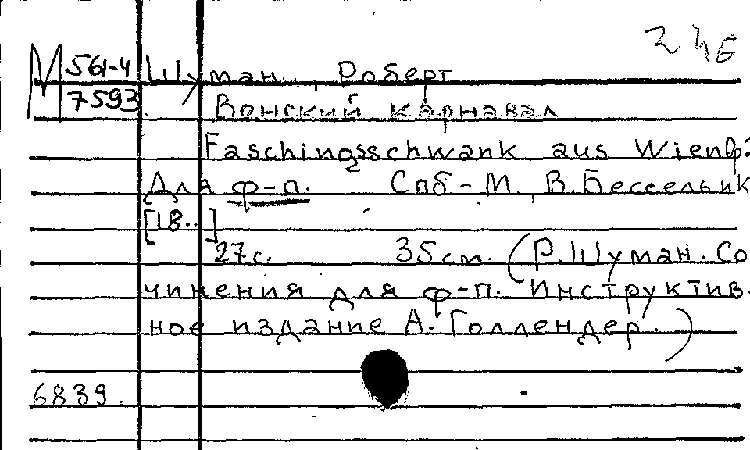 2 4б
М 561-4 Шуман, Роберт
7593 Вэнский карнавал
Faschingsschwank aus Wien
Для ф-п. Спб-М. В. Бессель и К
[18..]
27с. 35см. (Р. Шуман. Со
чинения для ф-п. Инструктив.
ное издание А. Голлендер.)
6839.